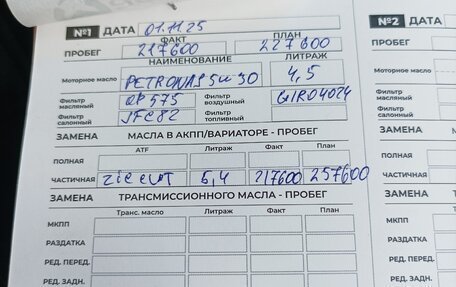 №1 ДАТА 01.11.25
ФАКТ ПЛАН
ПРОБЕГ 217600 227600
НАИМЕНОВАНИЕ ЛИТРАЖ
Моторное масло PETRONAS 5w30 4,5
Фильтр масляный OP575 Фильтр воздушный GIRO4024
Фильтр салонный JFC82 Фильтр топливный
ЗАМЕНА МАСЛА В АКПП/ВАРИАТОРЕ - ПРОБЕГ
ATF Литраж Факт План
ПОЛНАЯ
ЧАСТИЧНАЯ zic cvt 5,4 217600 257600
ЗАМЕНА ТРАНСМИССИОННОГО МАСЛА - ПРОБЕГ
Транс. масло Литраж Факт План
МКПП
РАЗДАТКА
РЕД. ПЕРЕД.
РЕД. ЗАДН.
№2 ДАТА
ПРОБЕГ
Моторное масло
Фильтр масляный
Фильтр салонный
ЗАМЕНА
ПОЛНАЯ
ЧАСТИЧНАЯ
ЗАМЕНА
МКПП
РАЗДАТКА
РЕД. ПЕРЕД.
РЕД. ЗАДН.